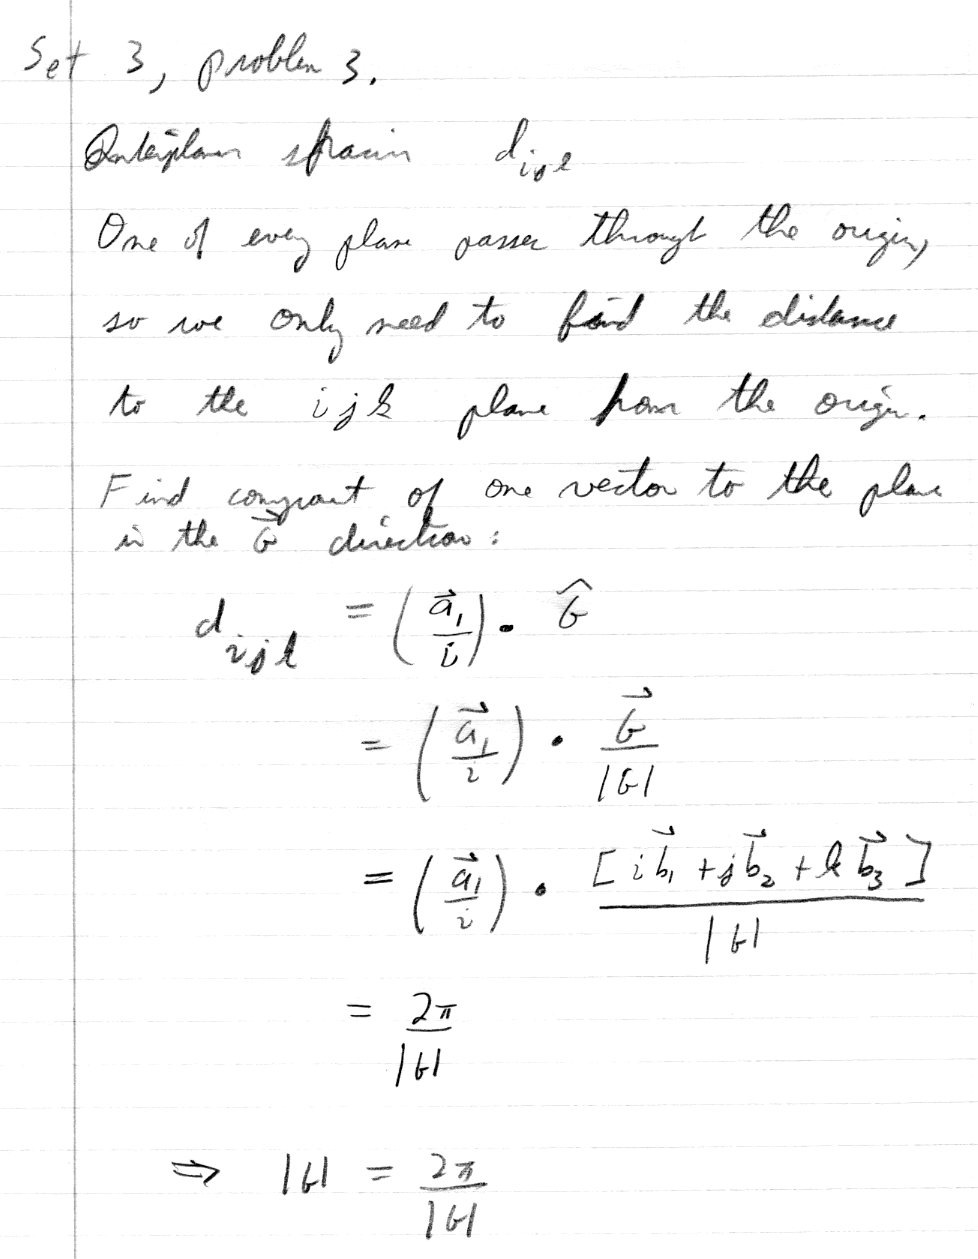 Set 3, problem 3.
Interplanar spacing d_{ijk}
One of every plane passes through the origin,
so we only need to find the distance
to the i j k plane from the origin.
Find component of one vector to the plane
in the \vec{G} direction:
d_{ijk} = (\vec{a}_1 / i) · \hat{G}
= (\vec{a}_1 / i) · \vec{G} / |G|
= (\vec{a}_1 / i) · [i\vec{b}_1 + j\vec{b}_2 + k\vec{b}_3] / |G|
= 2π / |G|
⇒ |G| = 2π / |G|